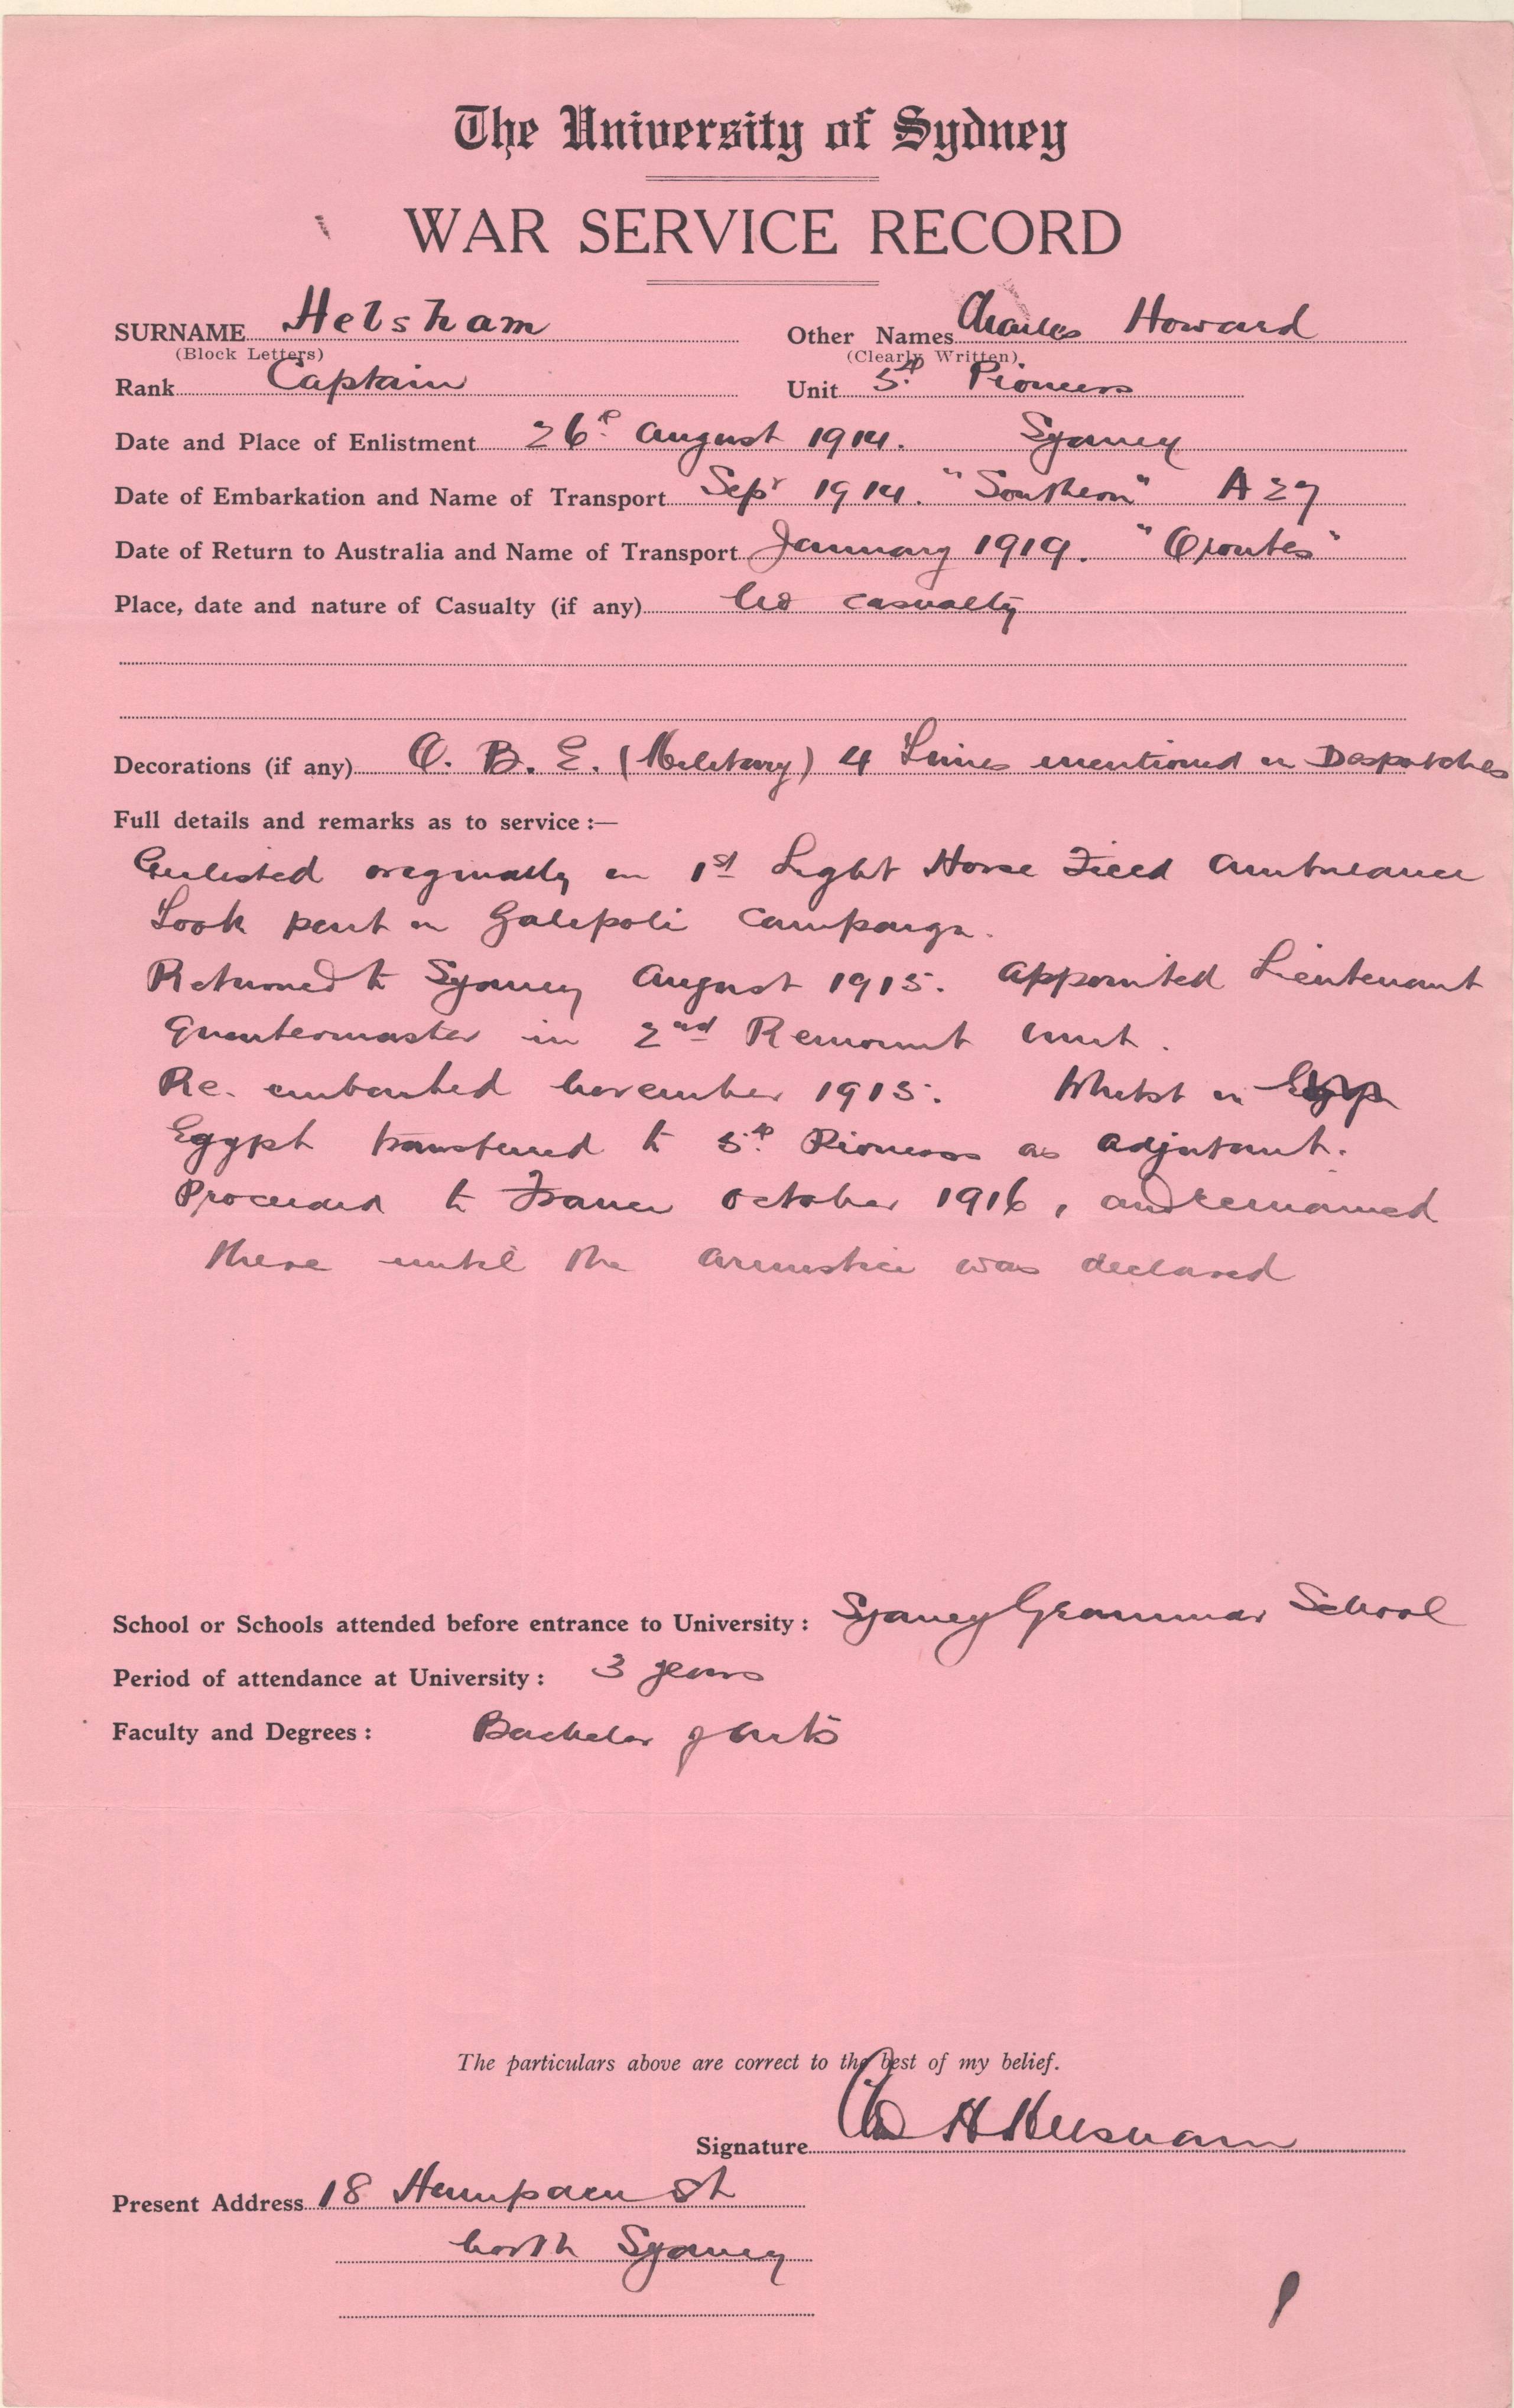 The University of Sydney
WAR SERVICE RECORD
SURNAME Helsham Other Names Charles Howard
(Block Letters) (Clearly Written)
Rank Captain Unit 5th Pioneers
Date and Place of Enlistment 26th August 1914. Sydney
Date of Embarkation and Name of Transport Sepr 1914. "Southern" A 27
Date of Return to Australia and Name of Transport January 1919. "Orontes"
Place, date and nature of Casualty (if any) No casualty
Decorations (if any) O. B. E. (Military) 4 Times mentioned in Despatches
Full details and remarks as to service :—
Enlisted originally in 1st Light Horse Field Ambulance
Took part in Galipoli Campaign.
Returned to Sydney August 1915. Appointed Lieutenant
Quartermaster in 2nd Remount Unit.
Re. embarked November 1915. Whilst in Egyp
Egypt transferred to 5th Pioneers as Adjutant.
Proceeded to France October 1916, and remained
there until the armistice was declared
School or Schools attended before entrance to University : Sydney Grammar School
Period of attendance at University : 3 years
Faculty and Degrees : Bachelor of Arts
The particulars above are correct to the best of my belief.
Signature H Helsham
Present Address 18 St
North Sydney